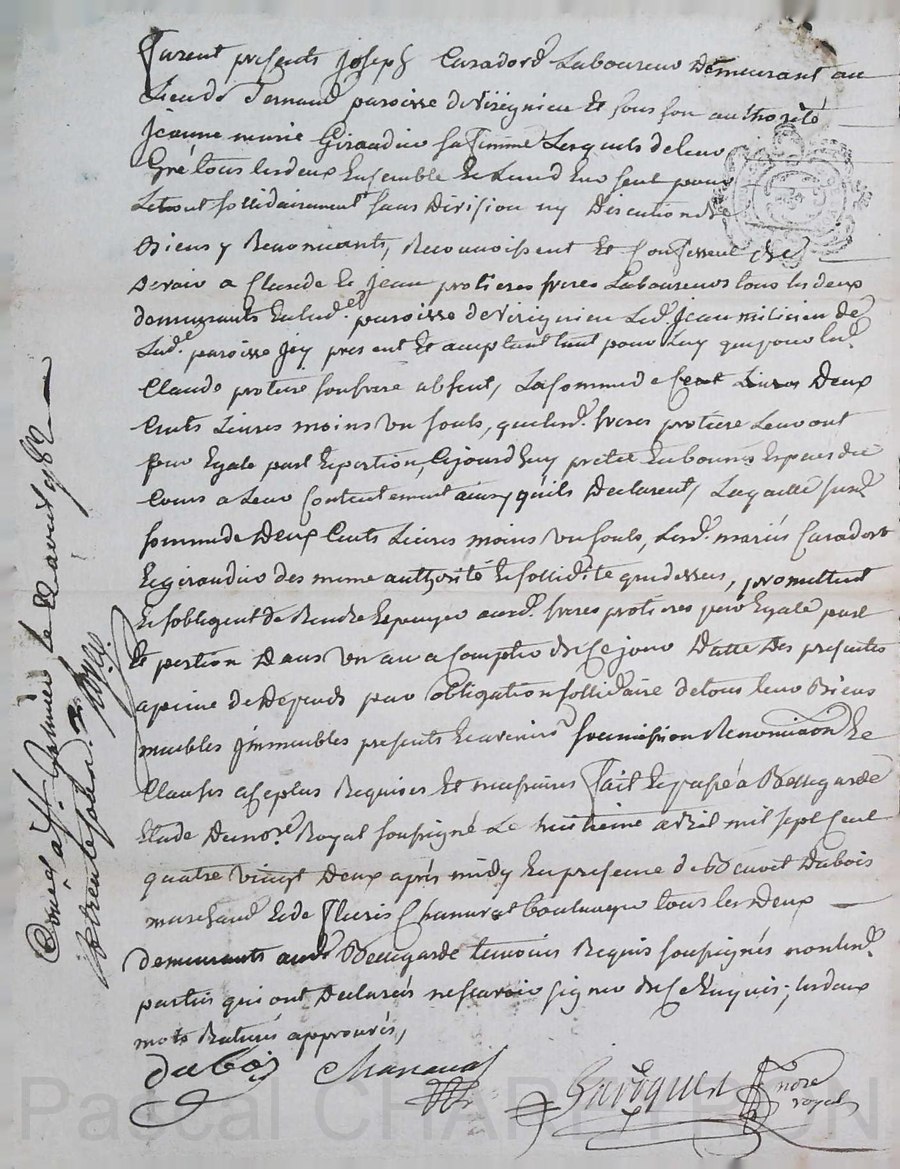 furent presents Joseph Caradord Laboureur Demeurant au
Lieu de paroisse de virignieu Et sous son authorité
Jeanne marie Giraudin sa femme Lesquels de leur
Gré tous les deux Ensemble Et Lund Eux seul pour
Letout sollidairement sans Division ny Discution de
Biens y Renoncants, Reconnoissent Et Confessent
Devoir a Claude Et Jean protieres freres Laboureurs tous les deux
demeurants Enlad.e paroisse de virignieu Led. Jean milicien de
Lad.e paroisse Jcy present Et acceptant tant pour Luy que pour led.
Claude protiere son frere absent, La somme de cent Livres Deux
Cents Livres moins un souls, que lesd. freres protiere Leur ont
par Egale part Et portion, Cejourdhuy pretté En bonnes Especes de
Cours a Leur Contentement ainsy quils Declarent, Laquelle susd.
somme de Deux Cents Livres moins un souls, Lesd. mariés Caradort
Et giraudin des meme authorité Et sollid.ité que dessus, promettent
Et sobligent de Rendre Et payer auxd. freres protieres pour Egale part
Et portion Dans un an a Compter de Ce jour Datte Des presentes
a peine de Depends par obligation sollidaire de tous leur Biens
meubles Jmmeubles presents Et avenirs soumission Renonciation Et
Clauses a Ce plus Requises Et Fait Et passé à Bellegarde
Etude Du no.re Royal soussigné Le huitieme avril mil sept Cent
quatre vingt Deux après midy En presence de Benoit Dubois
marchand Et de fleuris Chanavat boulanger tous les Deux
demeurants aud. Bellegarde temoins Requis soussignés non lesd.
parties qui ont Declarés ne scavoir signer de Ce Enquis; les deux
mots Raturés approuvés,
dubois Chanavat no.re
royal
Con.lé a St Galmier le avril 1782